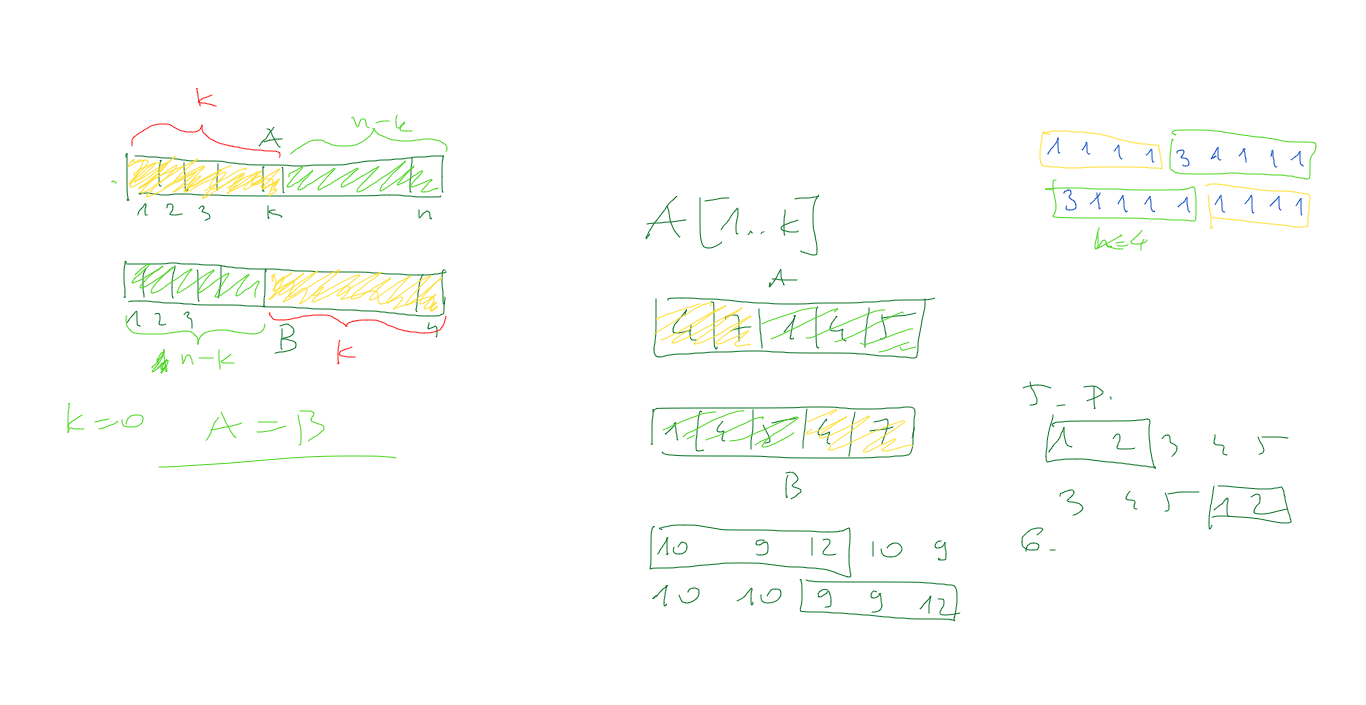 k
A
n-k
1 2 3 k n
1 2 3 n
n-k
B
k
k=0 A=B
A[1..k]
A
4 7 1 4 5
1 4 5 4 7
B
10 9 12 10 9
10 10 9 9 12
1 1 1 1 3 1 1 1 1
3 1 1 1 1 1 1 1 1
k=4
5. P.
1 2 3 4 5
3 4 5 1 2
6.